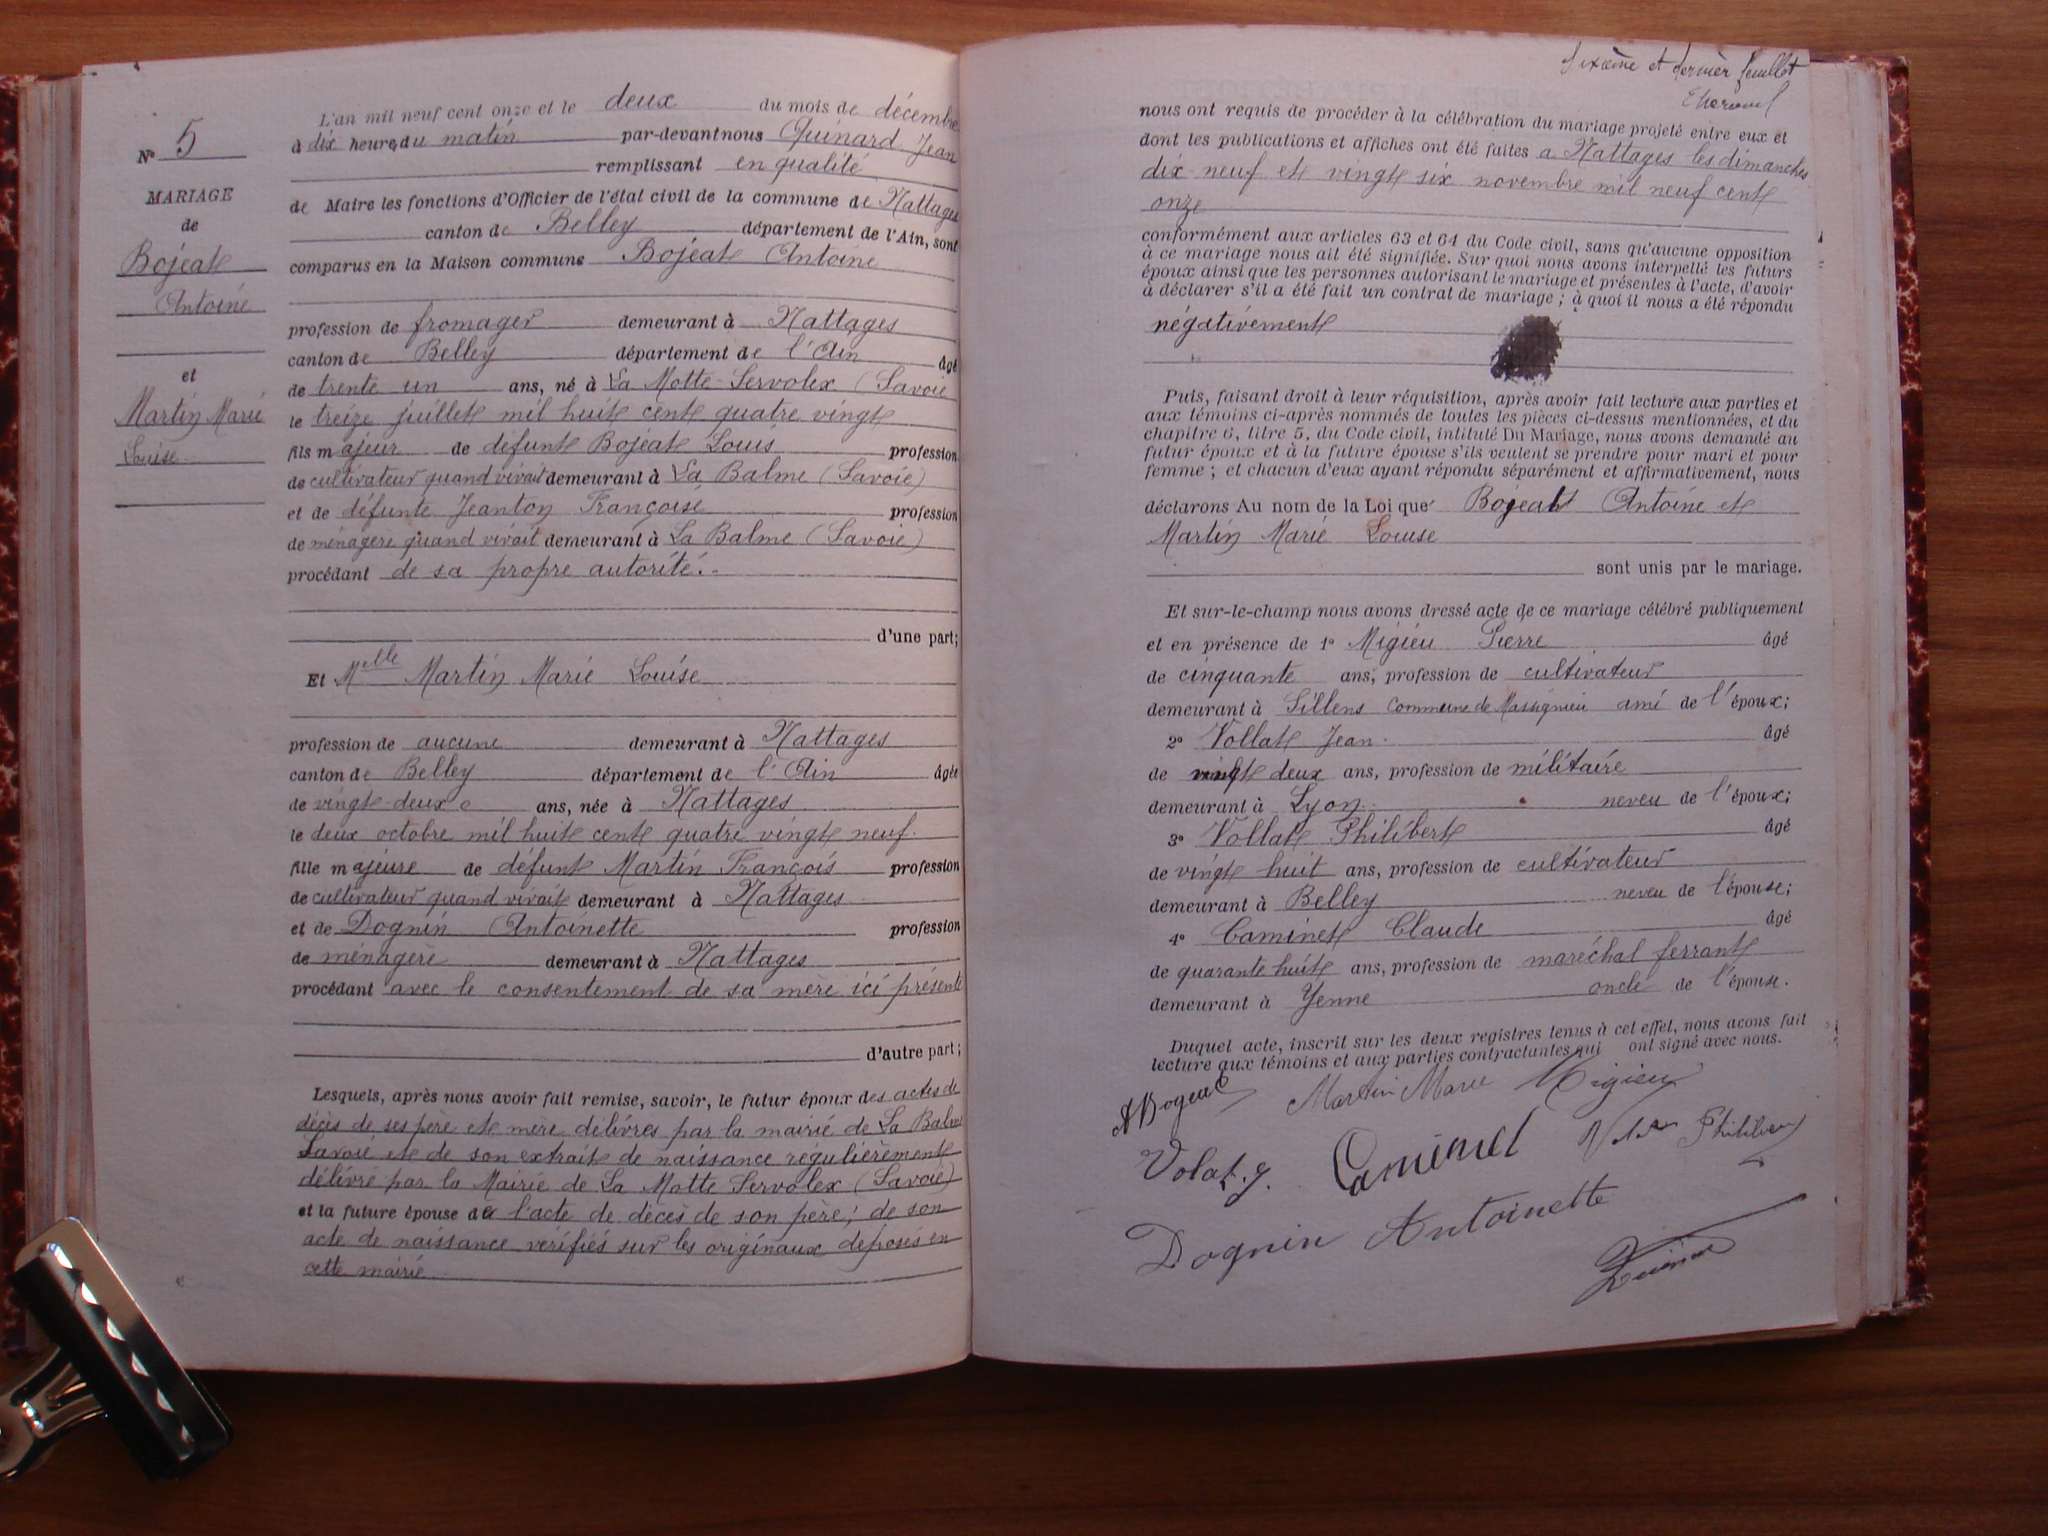 N° 5
MARIAGE
de
Bojeat
Antoine
et
Martin Marie
Louise
L'an mil neuf cent onze et le deux du mois de décembre
à dix heure du matin par-devant nous Quinard Jean
remplissant en qualité
de Maire les fonctions d'Officier de l'état civil de la commune de Nattages
canton de Belley département de l'Ain, sont
comparus en la Maison commune Bojeat Antoine
profession de fromager demeurant à Nattages
canton de Belley département de l'Ain âgé
de trente un ans, né à La Motte-Servolex (Savoie
le treize juillet mil huit cent quatre vingt
fils majeur de défunt Bojeat Louis profession
de cultivateur quand vivait demeurant à La Balme (Savoie)
et de défunte Jeanton Françoise profession
de ménagère quand vivait demeurant à La Balme (Savoie)
procédant de sa propre autorité.-
d'une part;
Et Melle Martin Marie Louise
profession de aucune demeurant à Nattages
canton de Belley département de l'Ain âgée
de vingt-deux ans, née à Nattages
le deux octobre mil huit cent quatre vingt neuf.
fille majeure de défunt Martin François profession
de cultivateur quand vivait demeurant à Nattages
et de Dognin Antoinette profession
de ménagère demeurant à Nattages
procédant avec le consentement de sa mère ici présente
d'autre part;
Lesquels, après nous avoir fait remise, savoir, le futur époux des actes de
décès de ses père et mère délivrés par la mairie de La Balme
Savoie et de son extrait de naissance régulièrement
délivré par la Mairie de La Motte Servolex (Savoie)
et la future épouse de l'acte de décès de son père; de son
acte de naissance vérifiés sur les originaux déposés en
cette mairie
sixième et dernier feuillet
nous ont requis de procéder à la célébration du mariage projeté entre eux et
dont les publications et affiches ont été faites a Nattages les dimanches
dix-neuf et vingt six novembre mil neuf cent
onze
conformément aux articles 63 et 64 du Code civil, sans qu'aucune opposition
à ce mariage nous ait été signifiée. Sur quoi nous avons interpellé les futurs
époux ainsi que les personnes autorisant le mariage et présentes à l'acte, d'avoir
à déclarer s'il a été fait un contrat de mariage; à quoi il nous a été répondu
négativement
Puis, faisant droit à leur réquisition, après avoir fait lecture aux parties et
aux témoins ci-après nommés de toutes les pièces ci-dessus mentionnées, et du
chapitre 6, titre 5, du Code civil, intitulé Du Mariage, nous avons demandé au
futur époux et à la future épouse s'ils veulent se prendre pour mari et pour
femme; et chacun d'eux ayant répondu séparément et affirmativement, nous
déclarons Au nom de la Loi que Bojeat Antoine et
Martin Marie Louise
sont unis par le mariage.
Et sur-le-champ nous avons dressé acte de ce mariage célébré publiquement
et en présence de 1° Migieu Pierre âgé
de cinquante ans, profession de cultivateur
demeurant à Sillens Commune de Massignieu ami de l'époux;
2° Vollat Jean. âgé
de vingt deux ans, profession de militaire
demeurant à Lyon neveu de l'époux;
3° Vollat Philibert âgé
de vingt huit ans, profession de cultivateur
demeurant à Belley neveu de l'épouse;
4° Caminet Claude âgé
de quarante huit ans, profession de maréchal ferrant
demeurant à Yenne oncle de l'épouse.
Duquel acte, inscrit sur les deux registres tenus à cet effet, nous avons fait
lecture aux témoins et aux parties contractantes qui ont signé avec nous.
A Bogeat Martin Marie Migieu
Volat. J. Caminet Philibert
Dognin Antoinette